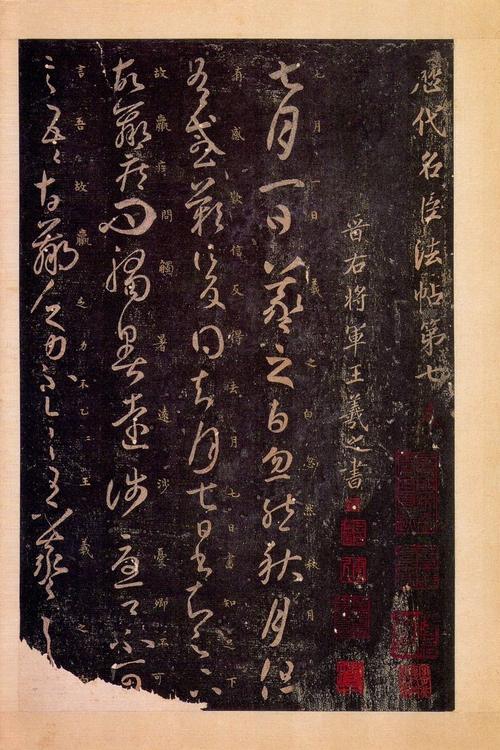 歷代名臣法帖第七
晉右將軍王羲之書
七月一日羲之白忽然秋月
七月一日羲之白忽然秋月但
有感歎信反得去月七日書知之下
有感歎信反得去月七日書知足下
故羸疾問觸暑遠涉憂卿不可
故羸疾問觸暑遠涉憂卿不可
言吾故羸乏力不乙乙王羲之
言吾故羸乏力不一一王羲之